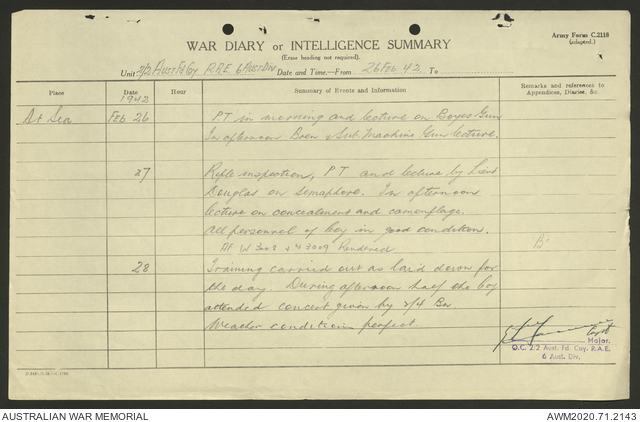 Army Form C.2118
(adapted.)
WAR DIARY or INTELLIGENCE SUMMARY
(Erase heading not required).
Unit 2/2 Aust Fd Coy RAE 6 Aust Div Date and Time.—From 26 Feb 42 To
Place Date Hour Summary of Events and Information Remarks and references to
Appendices, Diaries, &c.
1942
At Sea Feb 26 PT in morning and lecture on Boyes Gun
In afternoon Bren & Sub Machine Gun lecture.
27 Rifle inspection, PT and lecture by Lieut
Douglas on Semaphore. In afternoon
lecture on concealment and camouflage.
All personnel of Coy in good condition.
AF W 3008 & W 3009 Rendered
28 Training carried out as laid down for
the day. During afternoon half the Coy
attended concert given by 2/4 Bn
Weather conditions perfect.
Major.
O.C. 2/2 Aust. Fd. Coy. R.A.E.
6 Aust. Div.
AUSTRALIAN WAR MEMORIAL
AWM2020.71.2143